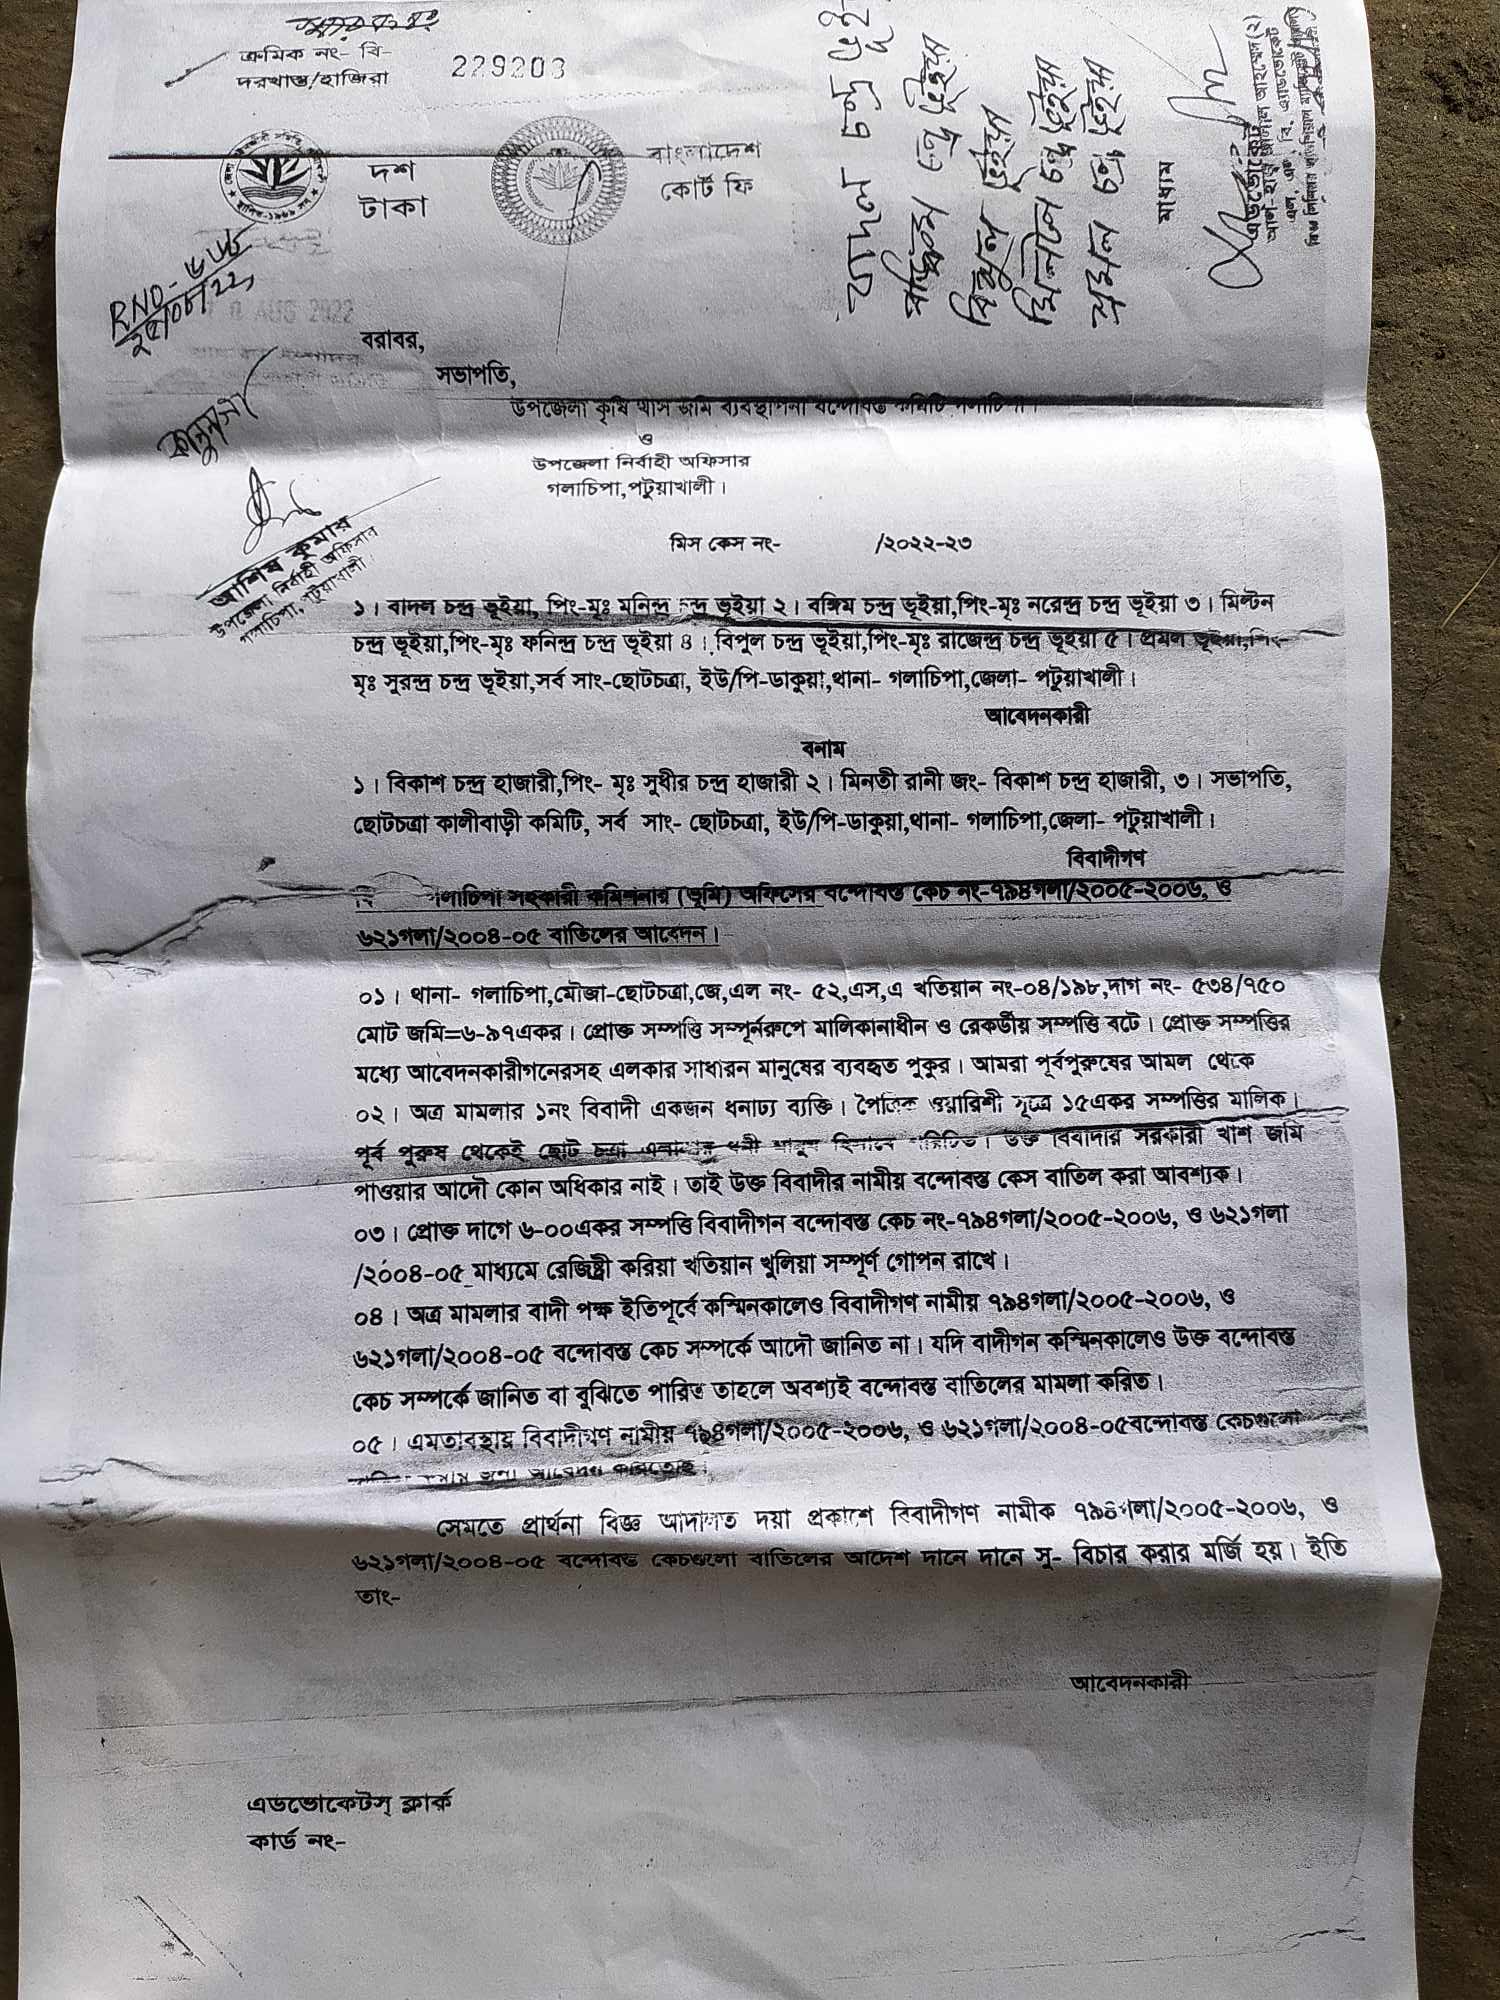 ক্রমিক নং- বি-
দরখাস্ত/হাজিরা
229203
দশ
টাকা
বাংলাদেশ
কোর্ট ফি
বাদল চন্দ্র ভূই
বঙ্কিম চন্দ্র ভূইয়া
বিপুল ভূইয়া
মিল্টন চন্দ্র ভূইয়া
মাধ্যম
এডভোকেট
RNO-
AUG 2022
বরাবর,
সভাপতি,
উপজেলা কৃষি খাস জমি ব্যবস্থাপনা বন্দোবস্ত কমিটি গলাচিপা।
ও
উপজেলা নির্বাহী অফিসার
গলাচিপা,পটুয়াখালী।
কানুনগো
আশিষ কুমার
উপজেলা নির্বাহী অফিসার
গলাচিপা, পটুয়াখালী।
মিস কেস নং- /২০২২-২৩
১। বাদল চন্দ্র ভূইয়া, পিং-মৃঃ মনিন্দ্র চন্দ্র ভূইয়া ২। বঙ্গিম চন্দ্র ভূইয়া,পিং-মৃঃ নরেন্দ্র চন্দ্র ভূইয়া ৩। মিল্টন
চন্দ্র ভূইয়া,পিং-মৃঃ ফনিন্দ্র চন্দ্র ভূইয়া ৪। বিপুল চন্দ্র ভূইয়া,পিং-মৃঃ রাজেন্দ্র চন্দ্র ভূইয়া ৫। শ্রমল ভূইয়া,পিং-
মৃঃ সুরন্দ্র চন্দ্র ভূইয়া,সর্ব সাং-ছোটচত্রা, ইউ/পি-ডাকুয়া,থানা- গলাচিপা,জেলা- পটুয়াখালী।
আবেদনকারী
বনাম
১। বিকাশ চন্দ্র হাজারী,পিং- মৃঃ সুধীর চন্দ্র হাজারী ২। মিনতী রানী জং- বিকাশ চন্দ্র হাজারী, ৩। সভাপতি,
ছোটচত্রা কালীবাড়ী কমিটি, সর্ব সাং- ছোটচত্রা, ইউ/পি-ডাকুয়া,থানা- গলাচিপা,জেলা- পটুয়াখালী।
বিবাদীগণ
গলাচিপা সহকারী কমিশনার (ভূমি) অফিসের বন্দোবস্ত কেচ নং-৭৯৪গলা/২০০৫-২০০৬, ও
৬২১গলা/২০০৪-০৫ বাতিলের আবেদন।
০১। থানা- গলাচিপা,মৌজা-ছোটচত্রা,জে,এল নং- ৫২,এস,এ খতিয়ান নং-০৪/১৯৮,দাগ নং- ৫৩৪/৭৫০
মোট জমি=৬-৯৭একর। প্রোক্ত সম্পত্তি সম্পূর্নরুপে মালিকানাধীন ও রেকর্ডীয় সম্পত্তি বটে। প্রোক্ত সম্পত্তির
মধ্যে আবেদনকারীগনেরসহ এলকার সাধারন মানুষের ব্যবহৃত পুকুর। আমরা পূর্বপুরুষের আমল থেকে
০২। অত্র মামলার ১নং বিবাদী একজন ধনাঢ্য ব্যক্তি। পৈত্রিক ওয়ারিশী সূত্রে ১৫একর সম্পত্তির মালিক।
পূর্ব পুরুষ থেকেই ছোট চত্রা এলাকার ধনী মানুষ হিসাবে পরিচিত। উক্ত বিবাদীর সরকারী খাশ জমি
পাওয়ার আদৌ কোন অধিকার নাই। তাই উক্ত বিবাদীর নামীয় বন্দোবস্ত কেস বাতিল করা আবশ্যক।
০৩। প্রোক্ত দাগে ৬-০০একর সম্পত্তি বিবাদীগন বন্দোবস্ত কেচ নং-৭৯৪গলা/২০০৫-২০০৬, ও ৬২১গলা
/২০০৪-০৫ মাধ্যমে রেজিষ্ট্রী করিয়া খতিয়ান খুলিয়া সম্পূর্ণ গোপন রাখে।
০৪। অত্র মামলার বাদী পক্ষ ইতিপূর্বে কস্মিনকালেও বিবাদীগণ নামীয় ৭৯৪গলা/২০০৫-২০০৬, ও
৬২১গলা/২০০৪-০৫ বন্দোবস্ত কেচ সম্পর্কে আদৌ জানিত না। যদি বাদীগন কস্মিনকালেও উক্ত বন্দোবস্ত
কেচ সম্পর্কে জানিত বা বুঝিতে পারিত তাহলে অবশ্যই বন্দোবস্ত বাতিলের মামলা করিত।
০৫। এমতাবস্থায় বিবাদীগণ নামীয় ৭৯৪গলা/২০০৫-২০০৬, ও ৬২১গলা/২০০৪-০৫বন্দোবস্ত কেচগুলো
করার জন্য আবেদন করিতেছি।
সেমতে প্রার্থনা বিজ্ঞ আদালত দয়া প্রকাশে বিবাদীগণ নামীক ৭৯৪গলা/২০০৫-২০০৬, ও
৬২১গলা/২০০৪-০৫ বন্দোবস্ত কেচগুলো বাতিলের আদেশ দানে দানে সু- বিচার করার মর্জি হয়। ইতি
তাং-
আবেদনকারী
এডভোকেটস্ ক্লার্ক
কার্ড নং-